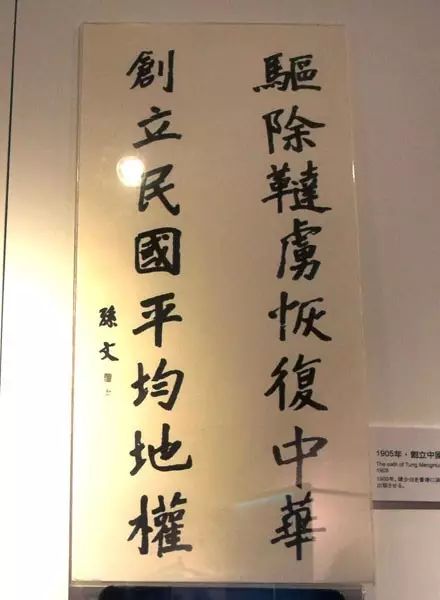 驅除韃虜恢復中華
創立民國平均地權
孫文
1905年，創立中國
The oath of Tung Menghui
1905